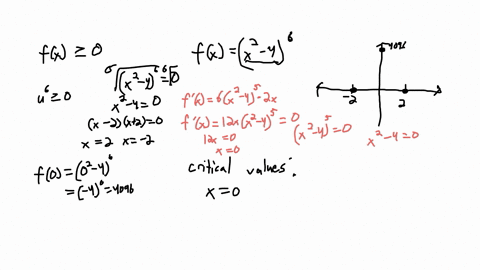 f(x) ≥ 0
f(x) = (x²-4)⁶
⁶√(x²-4)⁶ = ⁶√0
u⁶ ≥ 0
x²-4=0
(x-2)(x+2)=0
x=2 x=-2
f(0) = (0²-4)⁶
= (-4)⁶ = 4096
f'(x) = 6(x²-4)⁵·2x
f'(x) = 12x(x²-4)⁵ = 0
12x = 0
x = 0
(x²-4)⁵ = 0
x²-4=0
critical values:
x=0
4096
-2 2